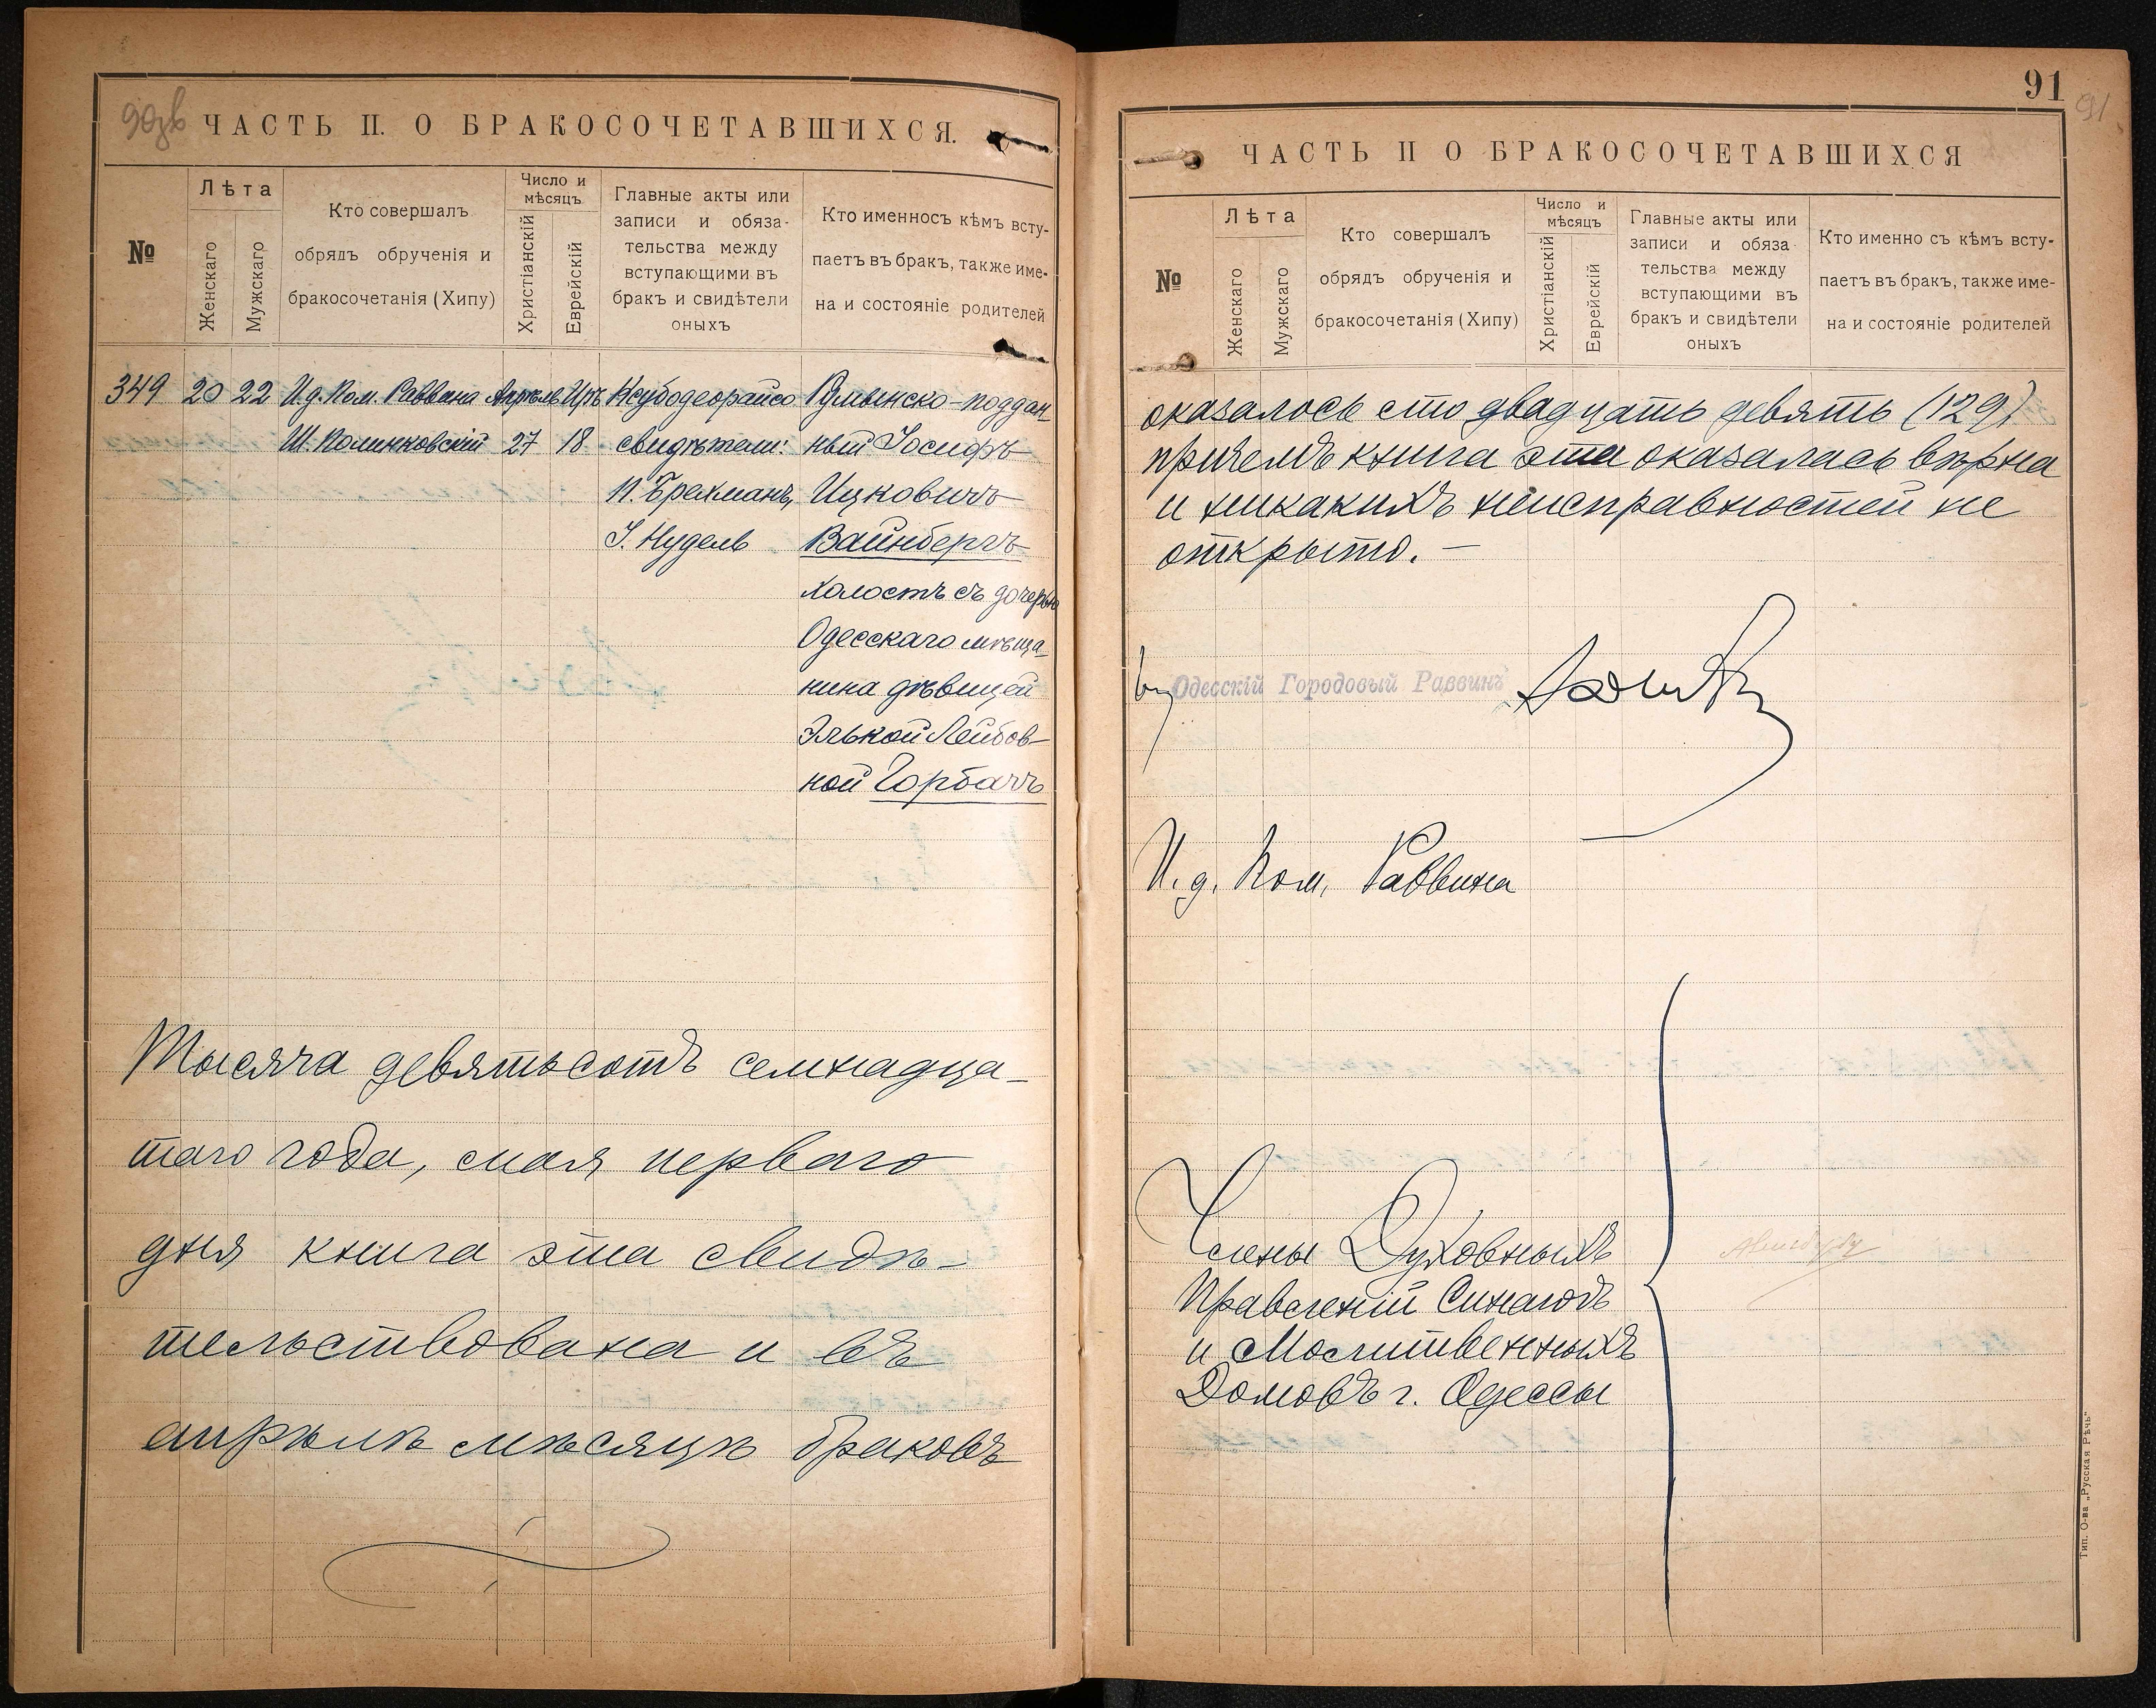 90 об
ЧАСТЬ II. О БРАКОСОЧЕТАВШИХСЯ.
№
Лѣта
Женскаго
Мужскаго
Кто совершалъ
обрядъ обрученія и
бракосочетанія (Хипу)
Число и
мѣсяцъ
Христіанскій
Еврейскій
Главные акты или
записи и обяза-
тельства между
вступающими въ
бракъ и свидѣтели
оныхъ
Кто именносъ кѣмъ всту-
паетъ въ бракъ, также име-
на и состояніе родителей
349 20 22 И.д. Пом. Раввина Апрѣль Иръ Ксубодеорайсо Румынско-поддан-
Ш. Полинковскій 27 18 свидѣтели: ный Іосифъ
И. Брехманъ, Ицковичъ
І. Нудель Вайнбергъ
холостъ съ дочерью
Одесскаго мѣща-
нина дѣвицей
Элькой Лейбов-
ной Горбачъ
Тысяча девятьсотъ семнадца-
таго года, мая перваго
дня книга эта свидѣ-
тельствована и въ
апрѣлѣ мѣсяцѣ браковъ
91
91
ЧАСТЬ II О БРАКОСОЧЕТАВШИХСЯ
№
Лѣта
Женскаго
Мужскаго
Кто совершалъ
обрядъ обрученія и
бракосочетанія (Хипу)
Число и
мѣсяцъ
Христіанскій
Еврейскій
Главные акты или
записи и обяза-
тельства между
вступающими въ
бракъ и свидѣтели
оныхъ
Кто именно съ кѣмъ всту-
паетъ въ бракъ, также име-
на и состояніе родителей
оказалось сто двадцать девять (129)
причемъ книга эта оказалась вѣрна
и никакихъ неисправностей не
открыто. —
Одесскій Городовый Раввинъ
И. д. Пом. Раввина
Члены Духовныхъ
Правленій Синагогъ
и Молитвенныхъ
Домовъ г. Одессы
Тип. О-ва „Русская Рѣчь"